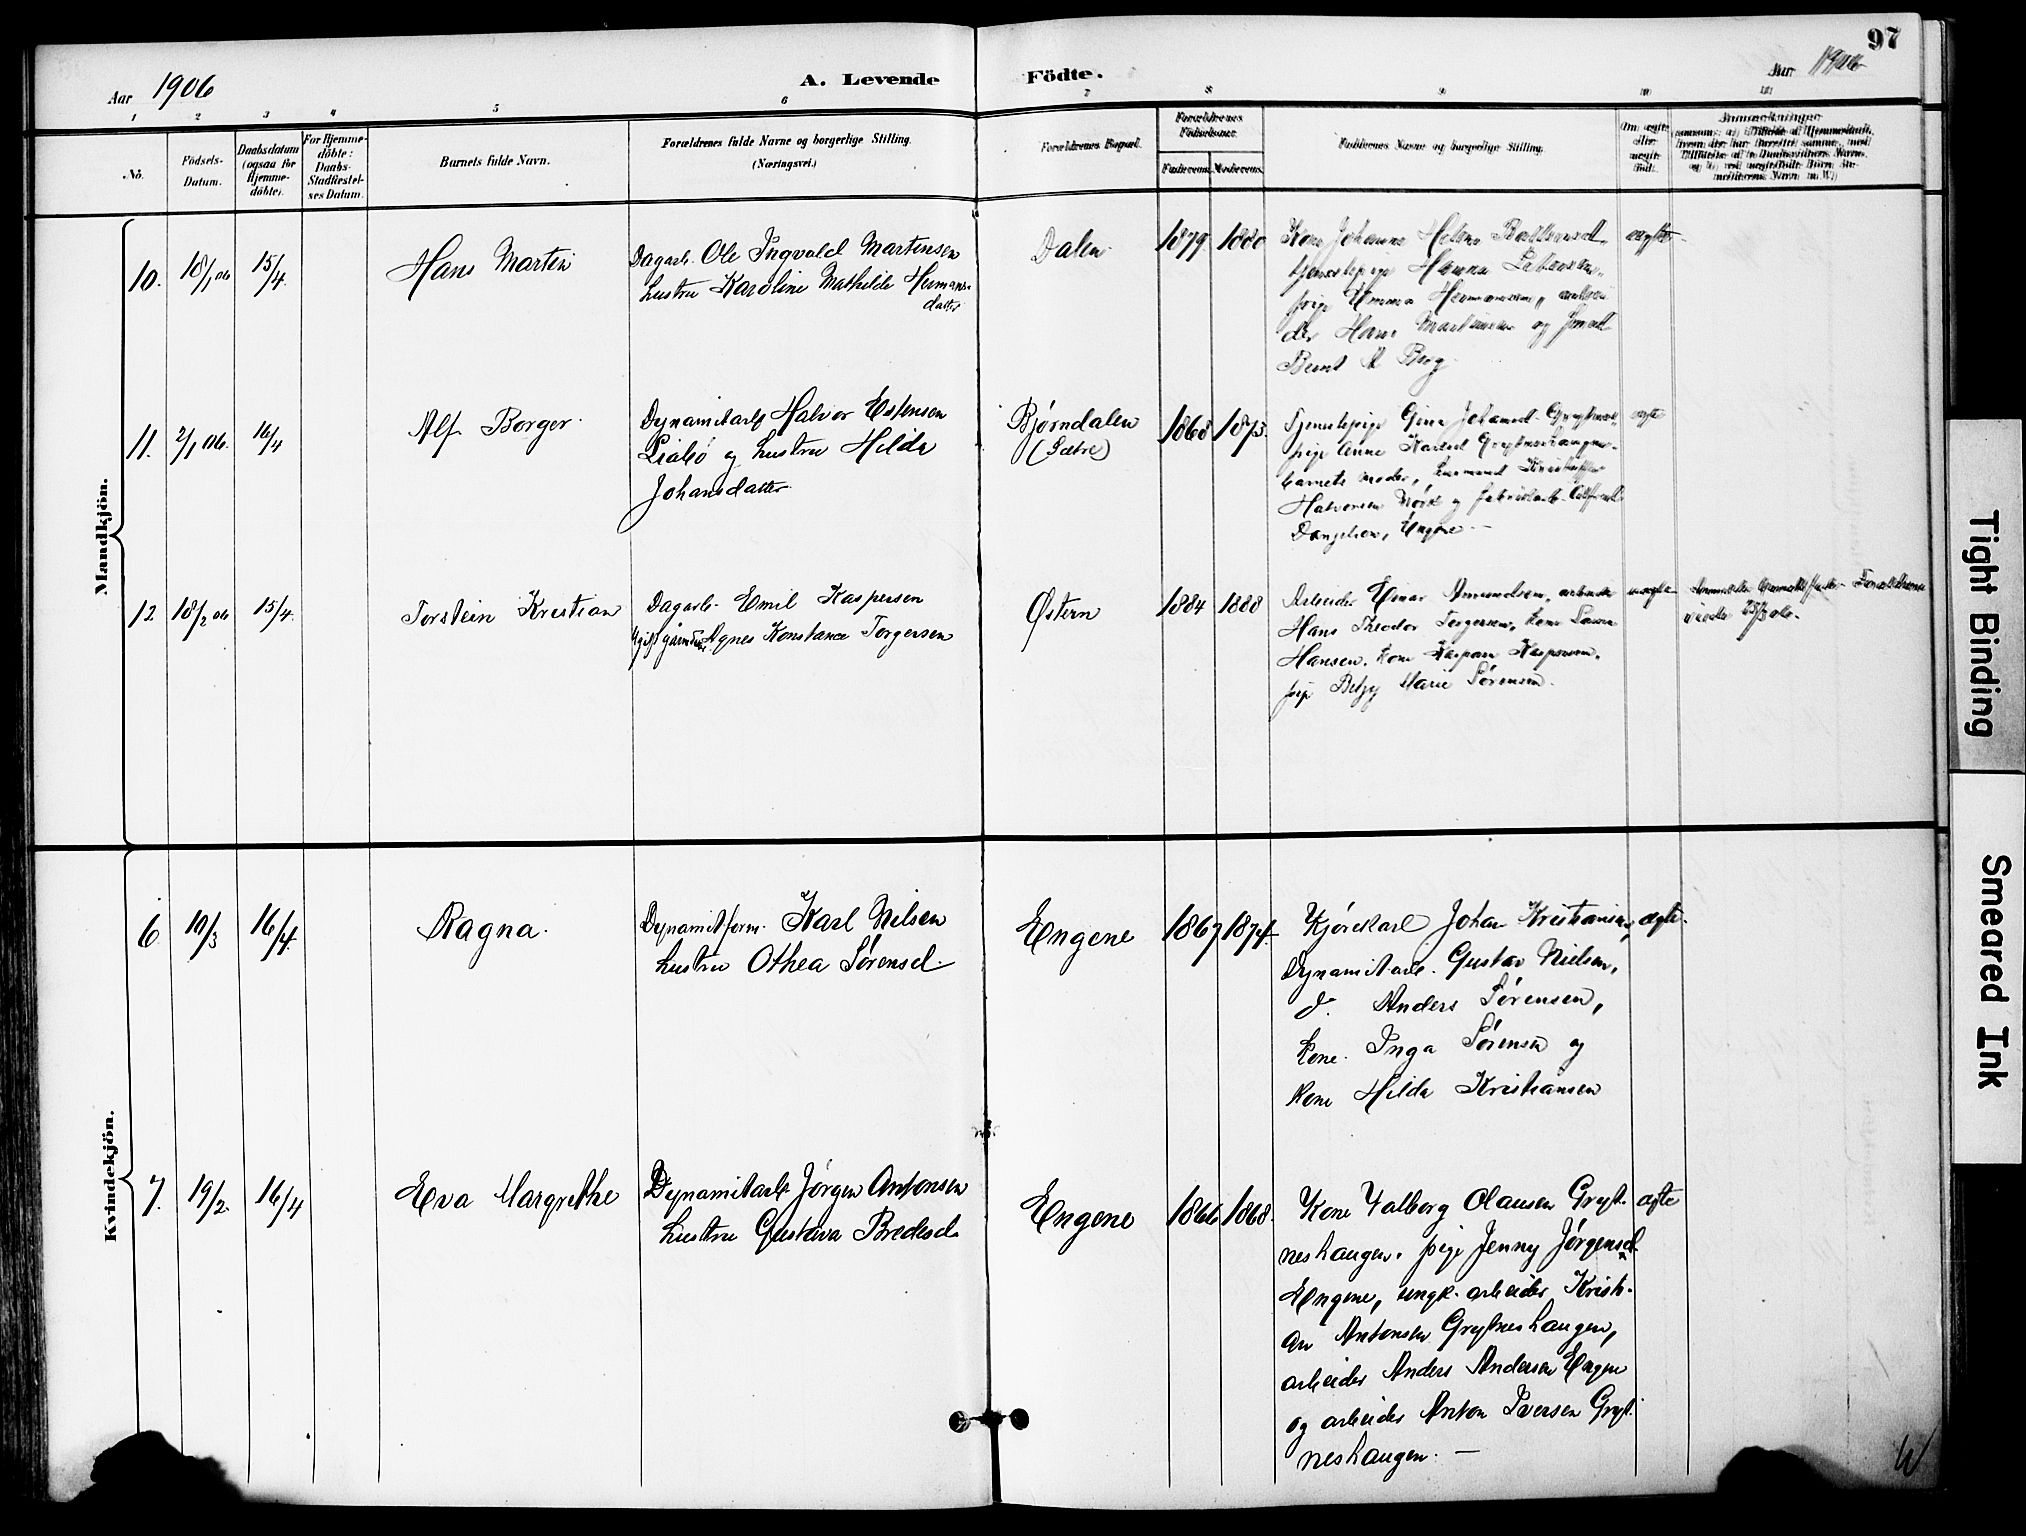 97
Aar 1906
A. Levende Födte.
Aar 1906
1 2 3 4 5 6 7 8 9 10 11
No.
Födsels-
Datum.
Daabsdatum
(ogsaa for
Hjemme-
döbte).
For Hjemme-
döbte:
Daabs-
Stadfæstel-
ses Datum.
Barnets fulde Navn.
Forældrenes fulde Navne og borgerlige Stilling.
(Næringsvei.)
Forældrenes Bopæl.
Forældrenes
Födselsaar.
Faderens. Moderens.
Faddernes Navne og borgerlige Stilling.
Om ægte
eller
uægte
födt.
Anmærkninger
Mandkjön.
10. 18/1 06 15/4. Hans Martin
Dagarb. Ole Ingvald Martinsen
hustru Karoline Mathilde Hermans-
datter
Dalen 1879 1880
Kone Johanne Helene
tjenestepige Hanna Petersen,
pige Emma Hermansen, arbei-
der Hans Martinsen og
Bernt A Berg.
ægte
11. 2/1 06. 16/4 Alf Borger.
Dynamitarb Halvor Estensen
Liabø og hustru Hilda
Johansdatter.
Bjørndalen
(Sætre)
1868 1873.
Tjenestepige Gina Johansd.
pige Anne Karlsd Grytneshaugen.
barnets moder,
Halvorsen og fabrikarb.
Engene. —
ægte
12 18/2 06 15/4. Torstein Kristian
Dagarb. Emil Kaspersen
Agnes Konstance Torgersen
Østern 1884 1888
Arbeider Einar Amundsen, arbeider
Hans Theodor Torgersen, kone
Hansen, kone Kaspersen,
pige Betzy Marie Sørensen.
uægte
Forældrene
viede
Kvindekjön.
6 10/3 16/4 Ragna.
Dynamitform. Karl Nilsen
hustru Othea Sørensd.
Engene 1867 1874.
Kjørekarl Johan Kristiansen,
Dynamitarb. Gustav Nielsen,
d. Anders Sørensen,
kone. Inga Sørensen og
kone Hilda Kristiansen
ægte.
7. 19/2. 16/4 Eva Margrethe
Dynamitarb Jørgen Antonsen
hustru Gustava Bredesd.
Engene 1866 1868.
Kone Valborg Olausen Gryt-
neshaugen, pige Jenny Jørgensd.
Engene, ungk. arbeider Kristi-
an Antonsen Grytneshaugen,
arbeider Anders Andersen Engene
og arbeider Anton Iversen Gryt-
neshaugen. —
ægte
Tight Binding
Smeared Ink